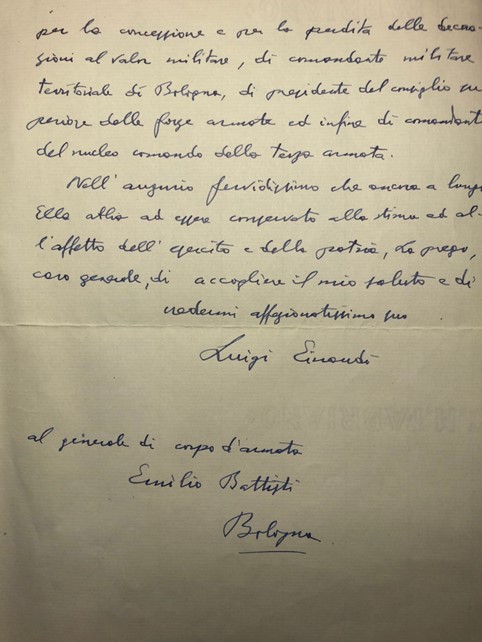 per la concessione e per la perdita delle decora-
zioni al valor militare, di comandante militare
territoriale di Bologna, di presidente del consiglio su
periore delle forze armate ed infine di comandante
del nucleo comando della terza armata.
Nell' augurio fervidissimo che ancora a lungo
Ella abbia ad essere conservato alla stima ed al-
l'affetto dell' esercito e della patria, La prego,
caro generale, di accogliere il mio saluto e di
credermi affezionatissimo suo
Luigi Einaudi
al generale di corpo d'armata
Emilio Battisti
Bologna